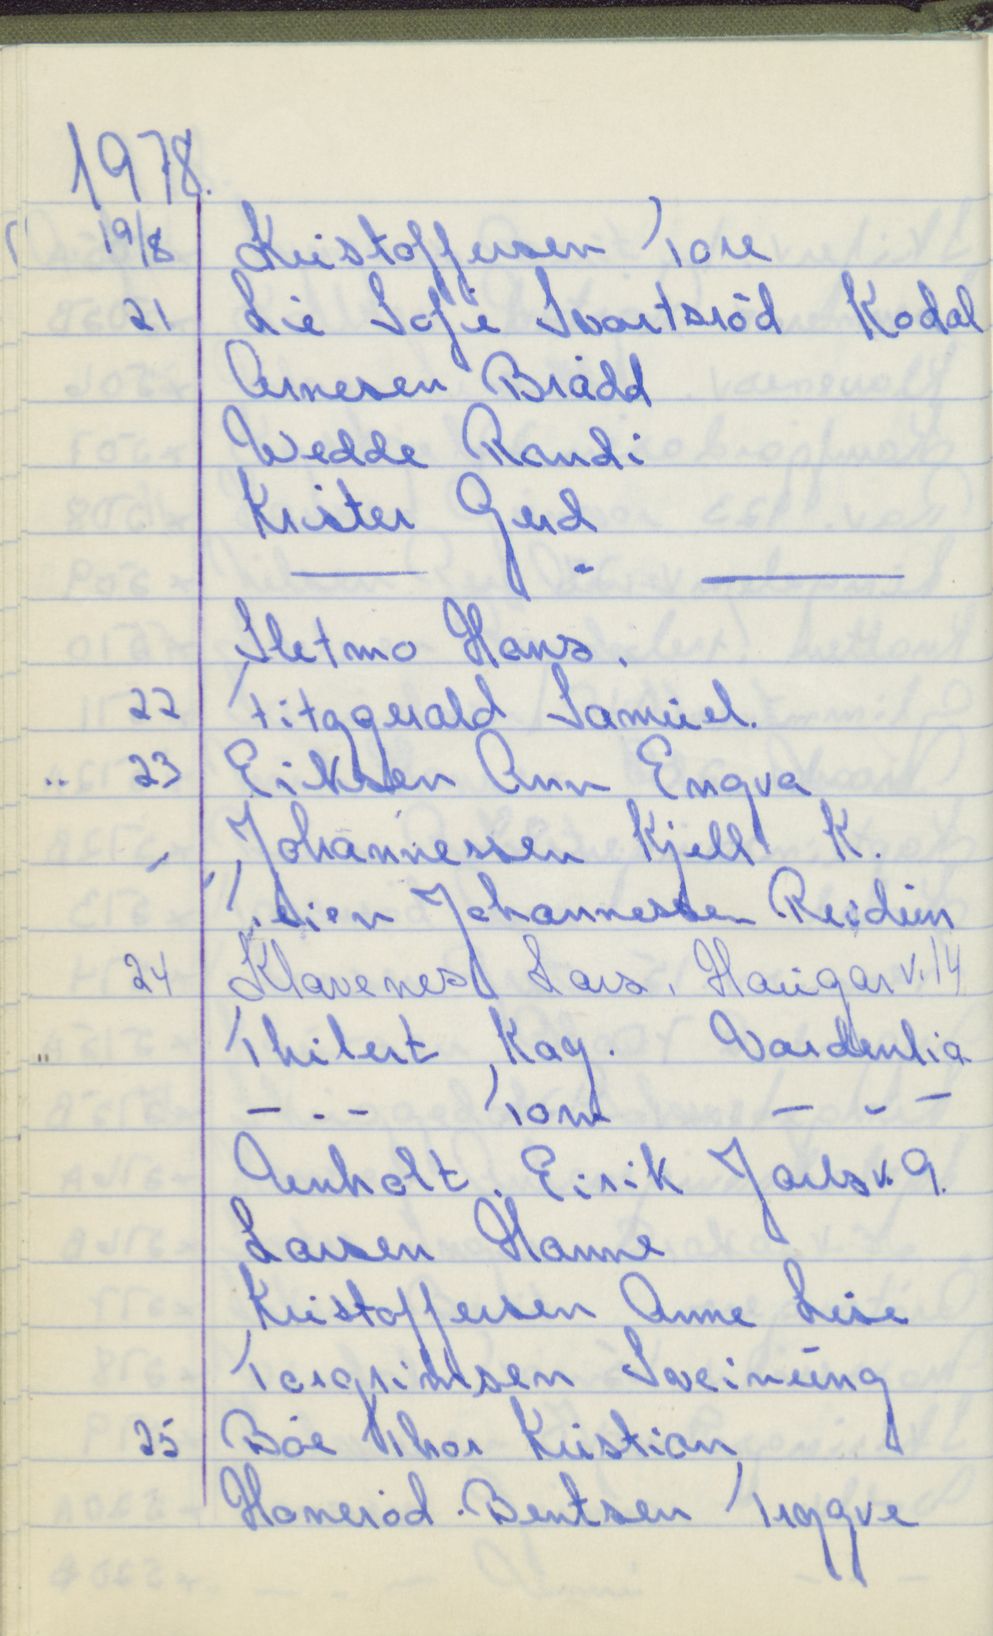 1978.
19/8 Kristoffersen Tore
21 Lie Sofie Svartsröd Kodal
Arnesen Brådd
Wedde Randi
Krister Gerd
——— - ———
Sletmo Hans.
22 Fitzgerald Samuel.
23 Eriksen Ann Engva
Johannessen Kjell K.
Johannessen Reidun
24 Klavenes Lars. Haugar v. 14
Thilert Kay. Vardenlia
— . - Tom — - —
Arnholt. Eirik Jarlsv. 9.
Larsen Hanne
Kristoffersen Anne Lise
Torgrimsen Sveinung
25 Böe Thor Kristian
Haneröd. Bentsen Tryggve